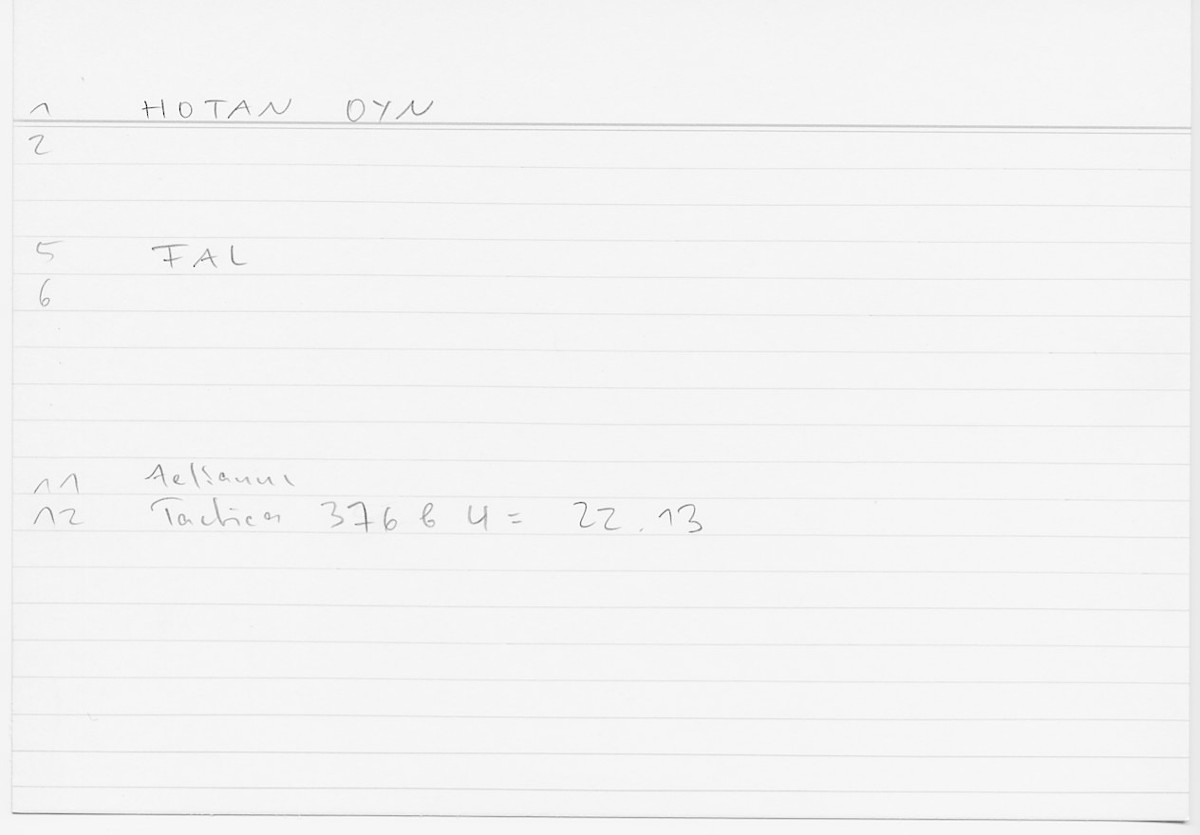 1 HOTAN OYN
2
5 FAL
6
11 Aelianus
12 Tactica 376 b 4 = 22.13